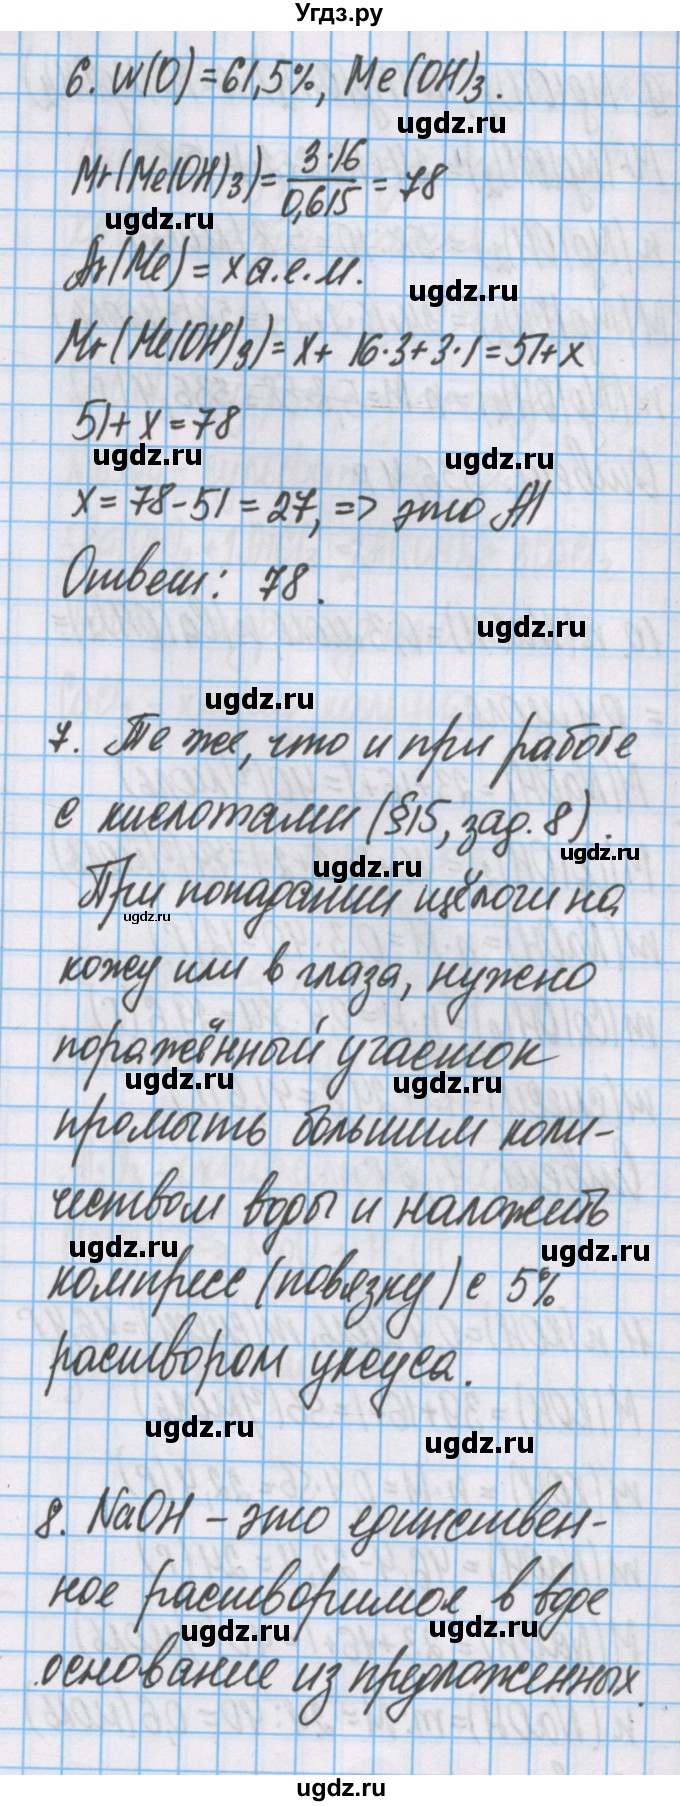 Угдз.ру
6. w(O) = 61,5%, Me(OH)3.
ugdz.ru
Mr(Me(OH)3) = 3·16/0,615 = 78
ugdz.ru
Ar(Me) = x а.е.м.
ugdz.ru
Mr(Me(OH)3) = x + 16·3 + 3·1 = 51 + x
51 + x = 78
ugdz.ru ugdz.ru
x = 78 - 51 = 27, => это Al
Ответ: 78.
ugdz.ru
ugdz.ru
7. Те же, что и при работе
с кислотами (§15, зад. 8).
ugdz.ru ugdz.ru
При попадании щёлочи на
ugdz.ru
кожу или в глаза, нужно
поражённый участок
ugdz.ru ugdz.ru
промыть большим коли-
чеством воды и наложить
ugdz.ru ugdz.ru
компресс (повязку) с 5%
раствором уксуса.
ugdz.ru ugdz.ru
8. NaOH – это единствен-
ное растворимое в воде
ugdz.ru ugdz.ru
основание из предложенных.
ugdz.ru